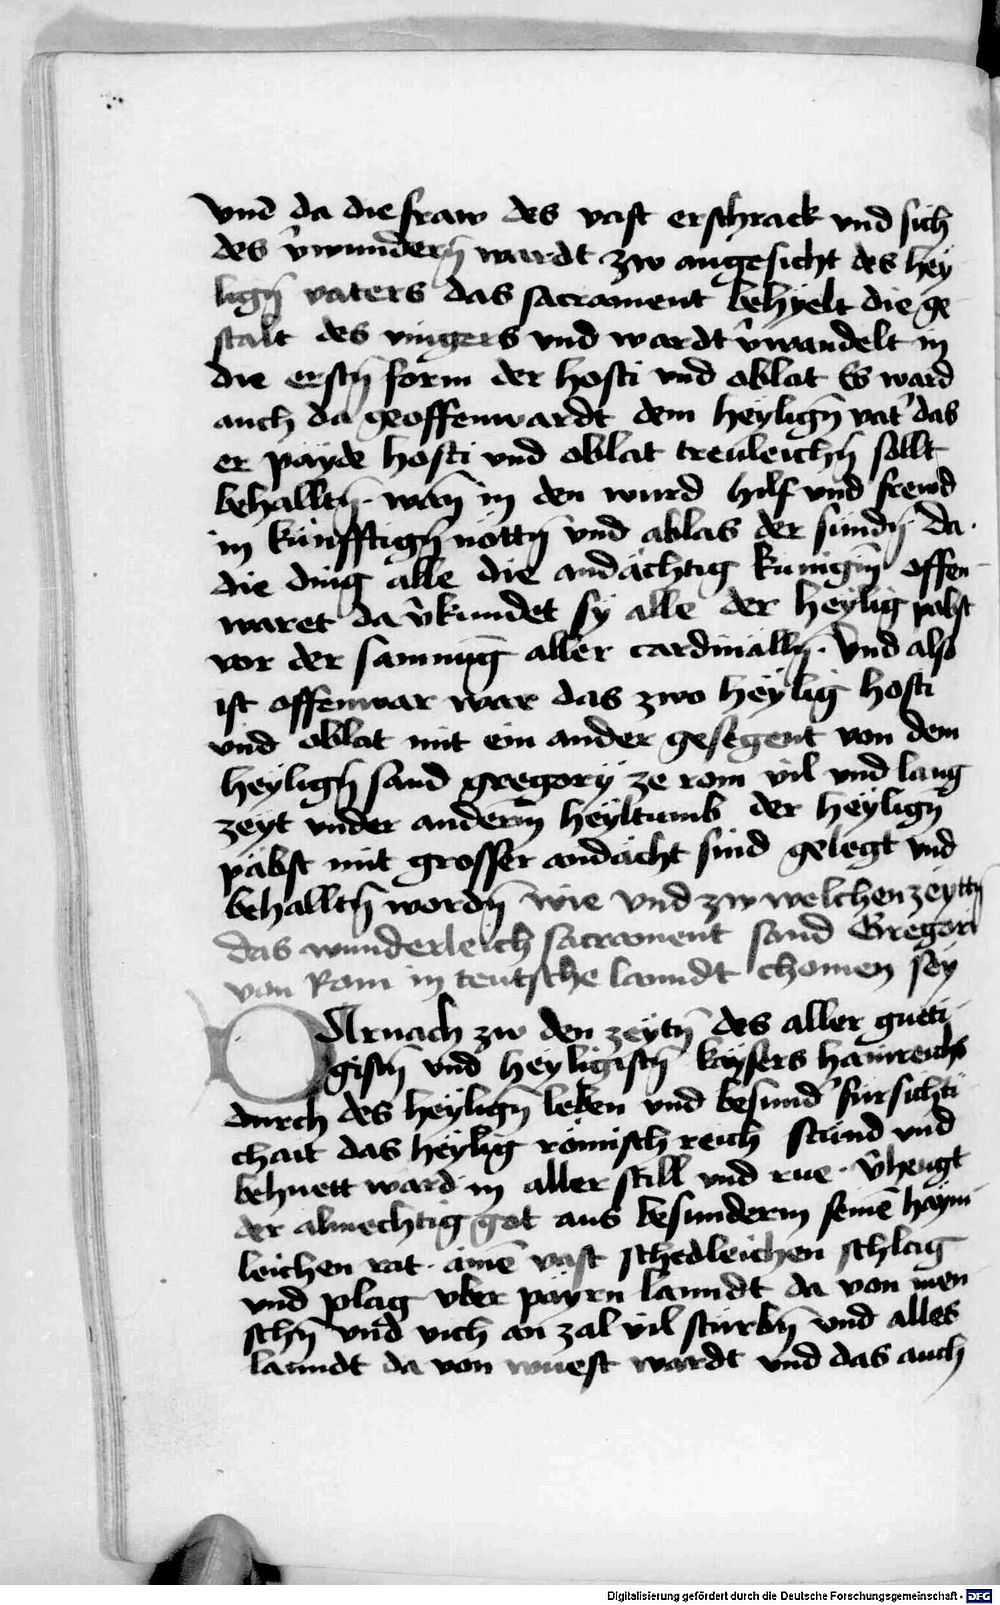 vnd da die fraw des vast erschrack vnd sich
des v̉wundern̄ wardt zw angesicht des hey
lign̄ vaters das sacrament behyelt die ge
stalt des vingers vnd wardt v̉wandelt in
die erstn̄ form der hosti vnd oblat Es ward
auch da geoffenwardt dem heylign̄ vat̉ das
er payde hosti vnd oblat treuleichn̄ sollt
behalltn̄ · wan̄ in den wurd hilf vnd frewd
in künfftign̄ nöttn̄ vnd ablas der sündn̄ da ·
die ding alle die andächtig kunigin̄ offen
waret da v̉kundet sy alle der heylig pabst
vor der samnūg aller cardinälln̄ · Vnd also
ist offenwar war das zwo heylig hosti
vnd oblat mit ein ander gesegent von dem
heylign̄ sand gregory ze rom vil vnd lang
zeyt vnder anderm̄ heyltumb der heylign̄
päbst mit grosser andacht sind gelegt vnd
behalltn̄ wordn̄ wie vnd zw welchen zeyttn̄
das wunderleich sacrament sand Gregori
von Rom in teutsche lanndt chomen sey
DArnach zw den zeytn̄ des aller gueti
gistn̄ vnd heyligistn̄ kaysers hainreichs
durch des heylign̄ leben vnd besund̉ fürsichti
chait das heylig römisch reich stünd vnd
behuett ward in aller still vnd rue · v̉hengt
der almechtig got aus besunderm seinē haym
leichen rat · ainē vast schedleichen schlag
vnd plag vber payrn lanndt da von men
schn̄ vnd vich an zal vil stürbn̄ vnd alles
lanndt da von wuest wardt vnd das auch
Digitalisierung gefördert durch die Deutsche Forschungsgemeinschaft - DFG